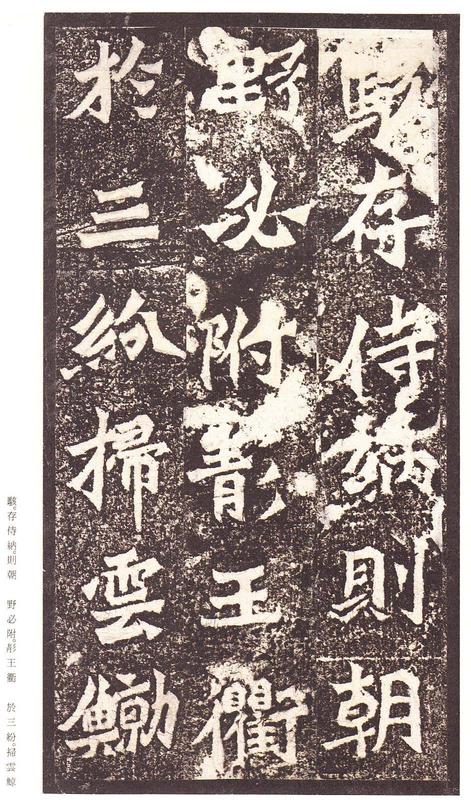 駭存侍納則朝
野必附王衢
於三紛掃雲鯨
駭存侍納則朝 野必附王衢 於三紛掃雲鯨